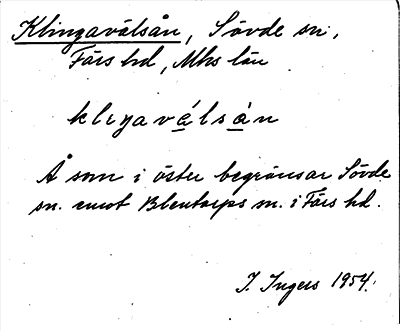 Klingavälsån, Sövde sn,
Färs hd, Mhs län
kleŋaválsån
Å som i öster begränsar Sövde
sn. emot Blentarps sn. i Färs hd.
I. Ingers 1954.